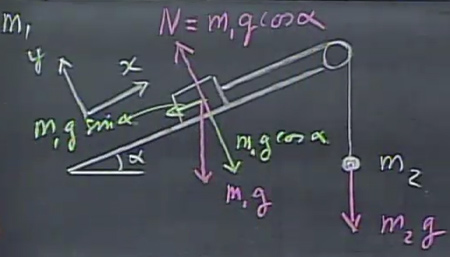 m₁
N = m₁g cos α
y
x
m₁g sin α
α
m₁g cos α
m₁g
m₂
m₂g